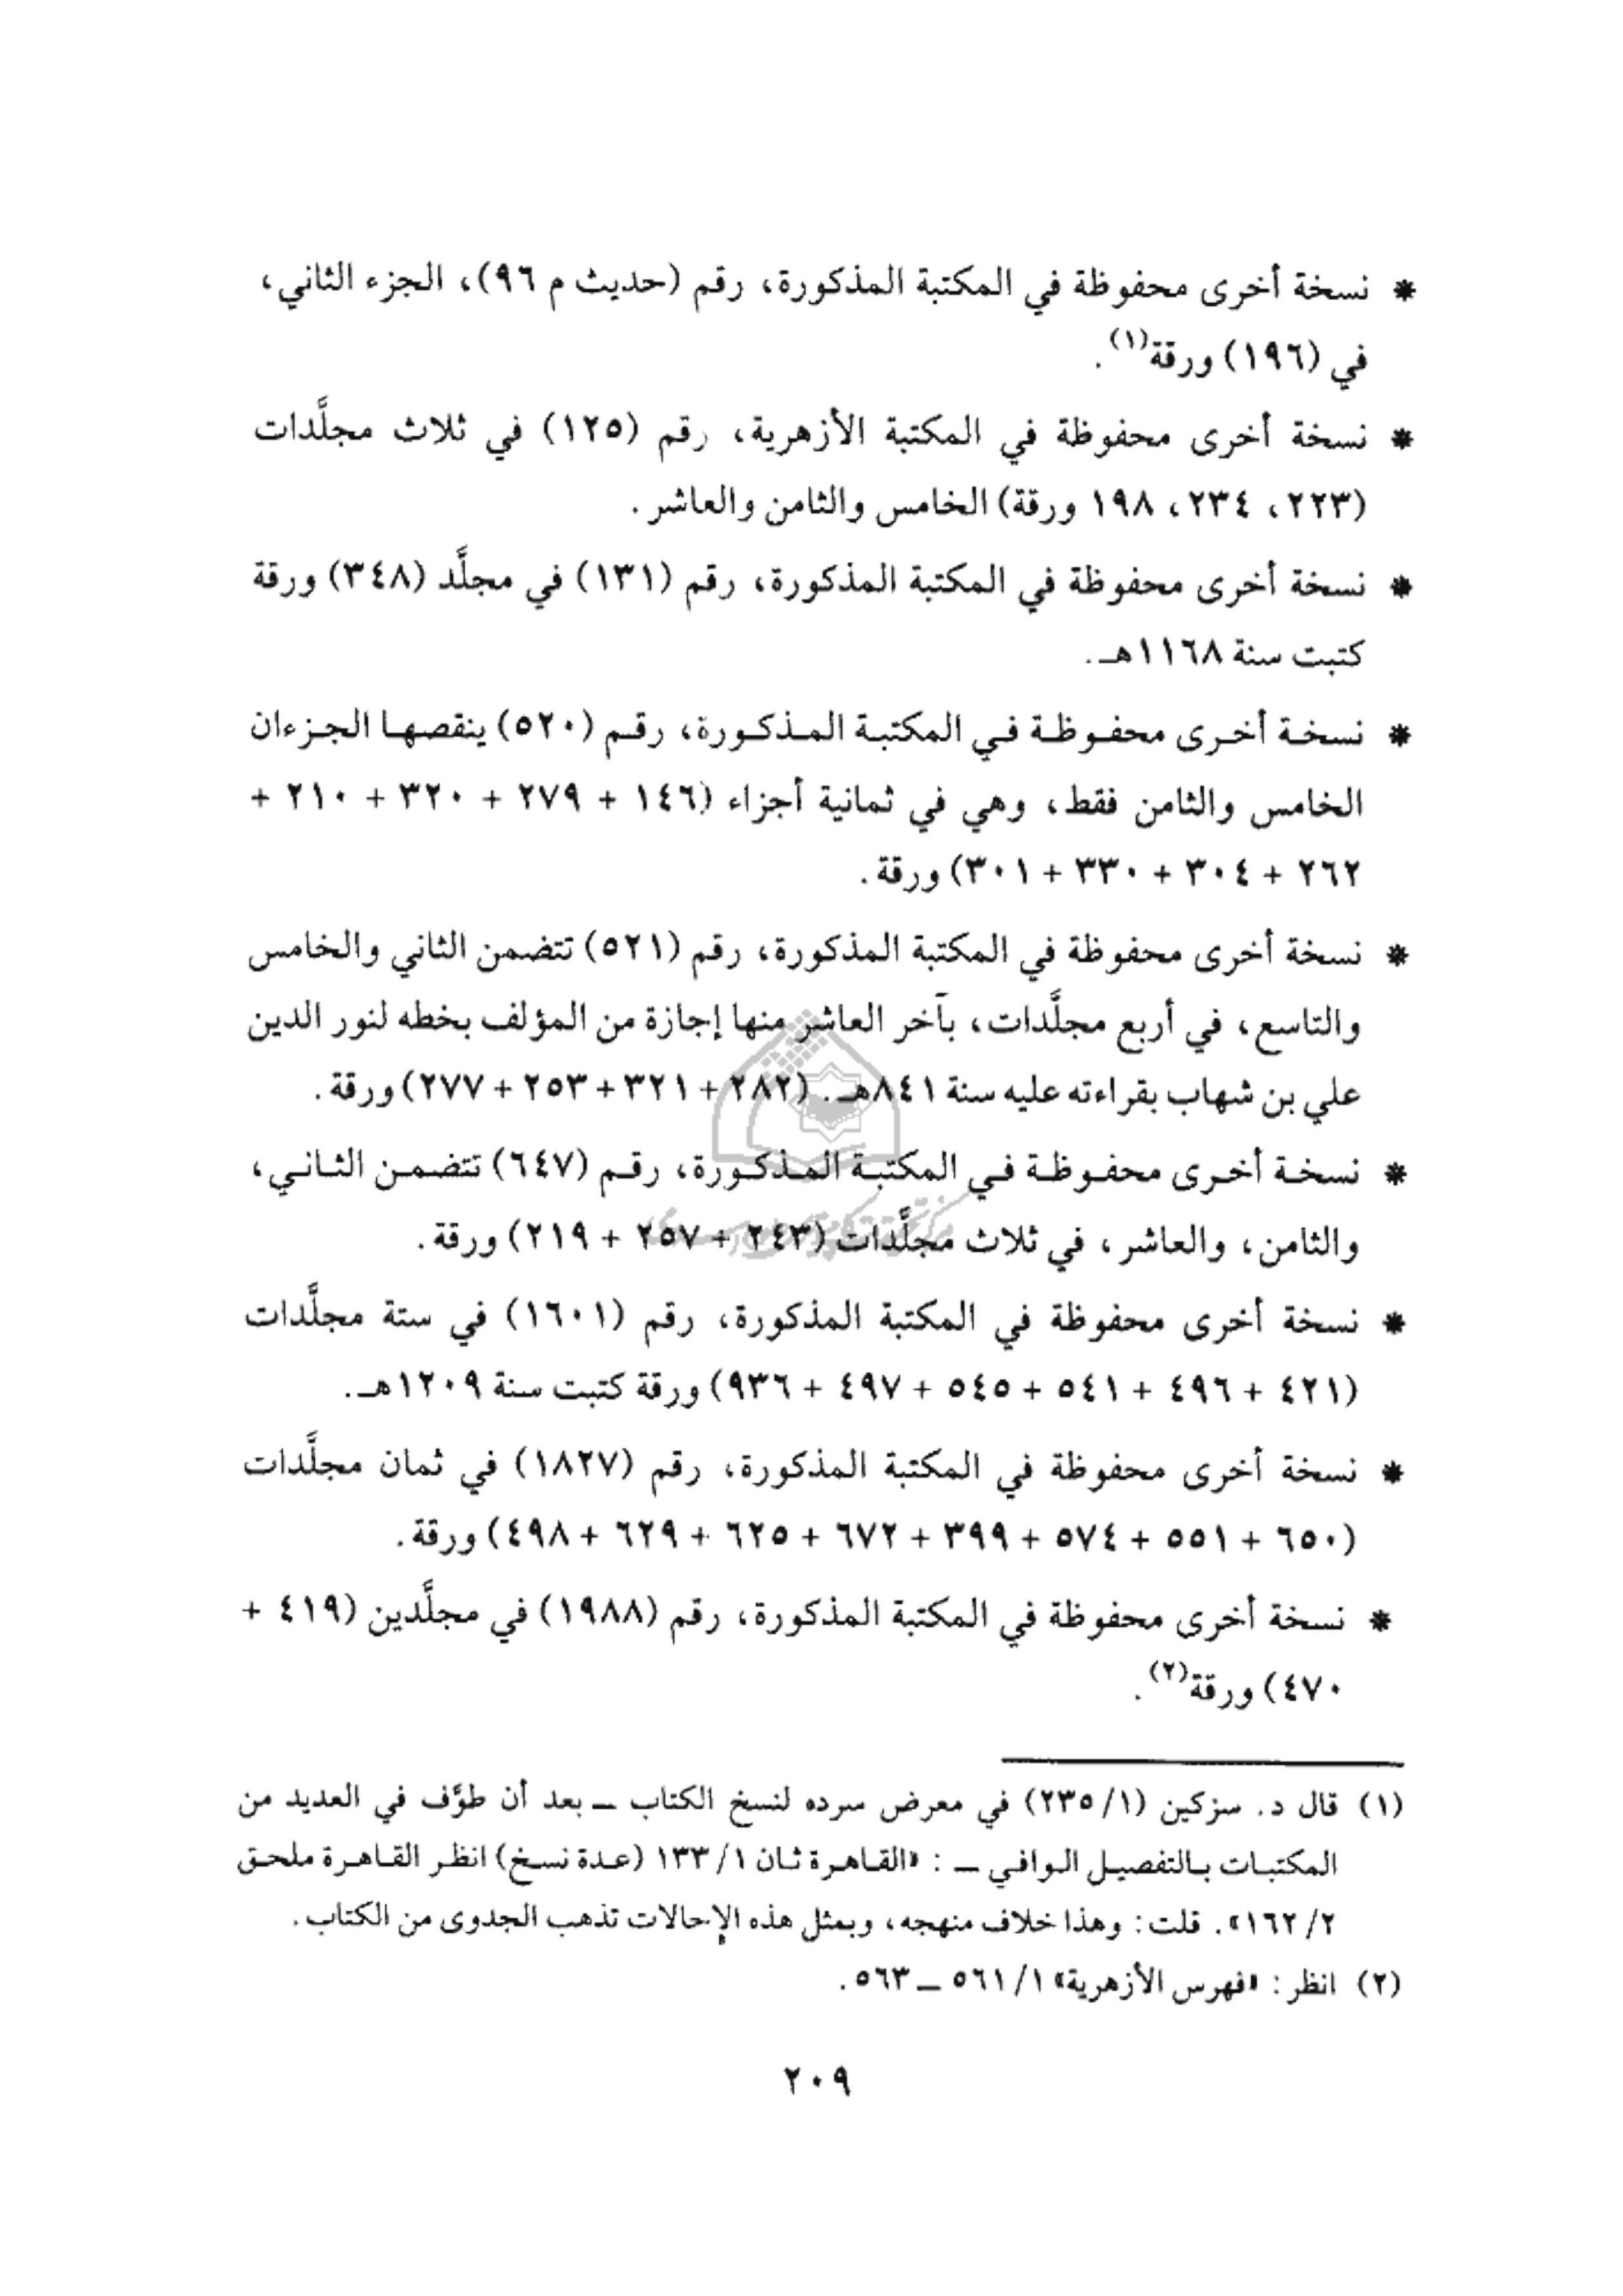 * نسخة أخرى محفوظة في المكتبة المذكورة، رقم (حديث م ٩٦)، الجزء الثاني،
في (١٩٦) ورقة(١).
* نسخة أخرى محفوظة في المكتبة الأزهرية، رقم (١٢٥) في ثلاث مجلَّدات
(٢٢٣، ٢٣٤، ١٩٨ ورقة) الخامس والثامن والعاشر.
* نسخة أخرى محفوظة في المكتبة المذكورة، رقم (١٣١) في مجلَّد (٣٤٨) ورقة
كتبت سنة ١١٦٨هـ.
* نسخة أخرى محفوظة في المكتبة المذكورة، رقم (٥٢٠) ينقصها الجزءان
الخامس والثامن فقط، وهي في ثمانية أجزاء (١٤٦ + ٢٧٩ + ٣٢٠ + ٢١٠ +
٢٦٢ + ٣٠٤ + ٣٣٠ + ٣٠١) ورقة.
* نسخة أخرى محفوظة في المكتبة المذكورة، رقم (٥٢١) تتضمن الثاني والخامس
والتاسع، في أربع مجلَّدات، بآخر العاشر منها إجازة من المؤلف بخطه لنور الدين
علي بن شهاب بقراءته عليه سنة ٨٤١هـ. (٢٨٢ + ٣٢١ + ٢٥٣ + ٢٧٧) ورقة.
* نسخة أخرى محفوظة في المكتبة المذكورة، رقم (٦٤٧) تتضمن الثاني،
والثامن، والعاشر، في ثلاث مجلَّدات (٢٤٣ + ٢٥٧ + ٢١٩) ورقة.
* نسخة أخرى محفوظة في المكتبة المذكورة، رقم (١٦٠١) في ستة مجلَّدات
(٤٢١ + ٤٩٦ + ٥٤١ + ٥٤٥ + ٤٩٧ + ٩٣٦) ورقة كتبت سنة ١٢٠٩هـ.
* نسخة أخرى محفوظة في المكتبة المذكورة، رقم (١٨٢٧) في ثمان مجلَّدات
(٦٥٠ + ٥٥١ + ٥٧٤ + ٣٩٩ + ٦٧٢ + ٦٢٥ + ٦٢٩ + ٤٩٨) ورقة.
* نسخة أخرى محفوظة في المكتبة المذكورة، رقم (١٩٨٨) في مجلَّدين (٤١٩ +
٤٧٠) ورقة(٢).
(١) قال د. سزكين (١/ ٢٣٥) في معرض سرده لنسخ الكتاب ــ بعد أن طوَّف في العديد من
المكتبات بالتفصيل الوافي ــ : «القاهرة ثان ١/ ١٣٣ (عدة نسخ) انظر القاهرة ملحق
٢/ ١٦٢». قلت: وهذا خلاف منهجه، وبمثل هذه الإحالات تذهب الجدوى من الكتاب.
(٢) انظر: «فهرس الأزهرية» ١/ ٥٦١ ــ ٥٦٣.
٢٠٩